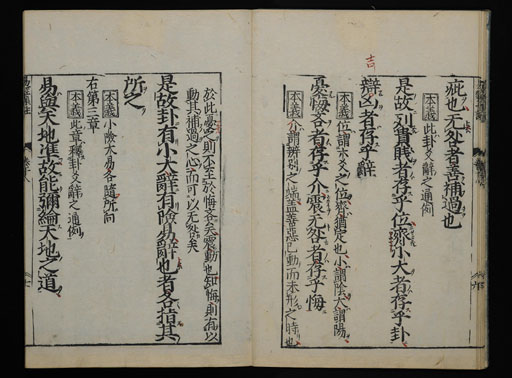 疵也无咎者善補過也
本義此卦爻辭之通例
是故列貴賤者存乎位齊小大者存乎卦
辯凶者存乎辭
吉
本義位謂六爻之位齊猶定也小謂陰大謂陽
憂悔吝者存乎介震无咎者存乎悔
本義介謂辨別之端蓋善惡已動而未形之時也
於此憂之則不至於悔吝矣震動也知悔則有以
動其補過之心而可以无咎矣
是故卦有小大辭有險易辭也者各指其
所之
本義小險大易各隨所向
右第三章
本義此章釋卦爻辭之通例
易與天地準故能彌綸天地之道